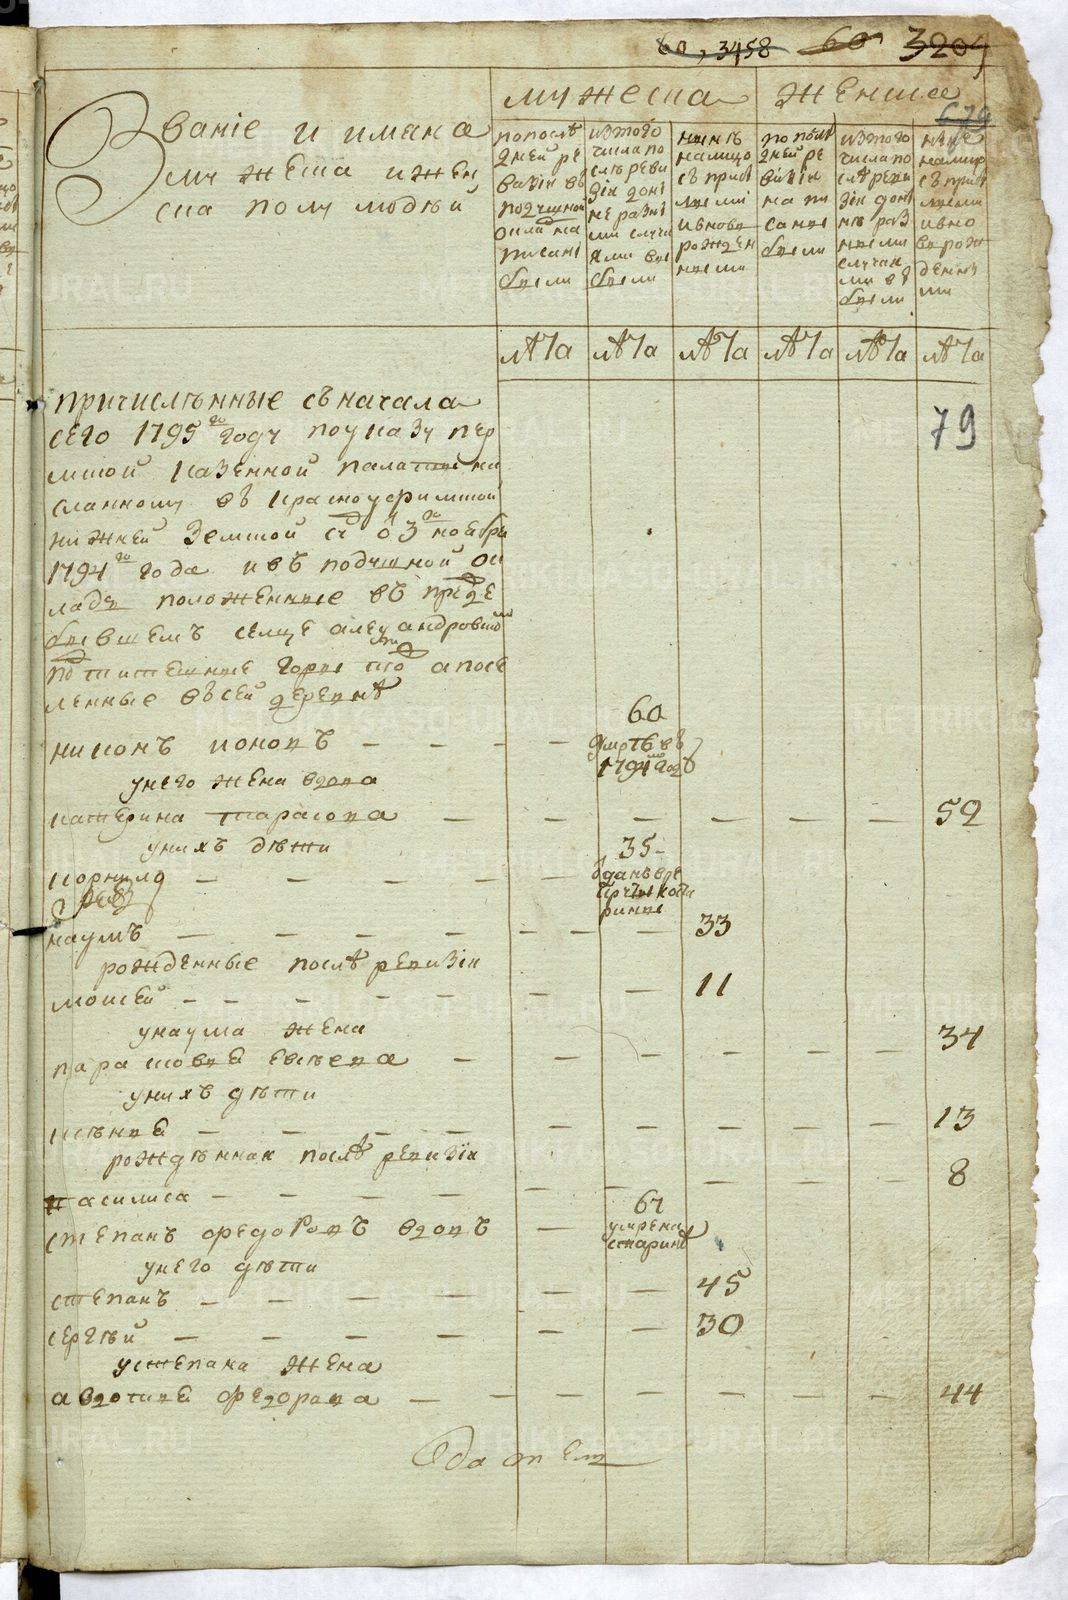 60, 3458 60 3209
мужеска женска
679
Званіе и имена
мужеска и жен
ска полу людей
по после
дней ре
визіи въ
подушной
окладъ на
писаны
были
изтого
числа по
сле реви
зіи до ны
не разны
ми случа
ями вы
были
нынѣ
налицо
съ прибы
лыми
и вновь
рожден
ными
по посл
дней ре
визіи
напи
саные
были
изтого
числа по
сле реви
зіи до ны
нѣ раз
ными
случаи
ми вы
были
ныне
налицо
съ прибы
лыми
и вно
вь рож
денны
ми
лѣта лѣта лѣта лѣта лѣта лѣта
79
причислѣнные съ начала
сего 1795го году по указу пер
мской казенной палаты
сланному въ красноуфимской
нижней земской судъ 3го ноября
1794го года и въ подушной ок
ладъ положенные въ преж де
бывшемъ селце александровском
а посе
ленные въ сей деревнѣ
никонъ ионовъ 60
умре въ
1794 году
у него жена вдова
катерина тарасова 52
у нихъ дѣти
корнило 35
наумъ 33
рожденные послѣ ревизіи
моисей 11
у наума жена
парасковья евсѣева 34
у нихъ дѣти
ксѣнья 13
рождѣнная послѣ ревизіи
василиса 8
степанъ федоровъ вдовъ 67
умре
у него дѣти
степанъ 45
сергѣй 30
у степана жена
авдотья федорова 44